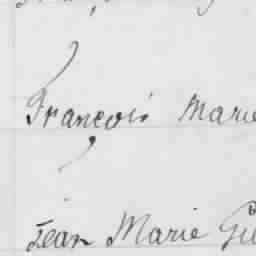 François Marie
Jean Marie